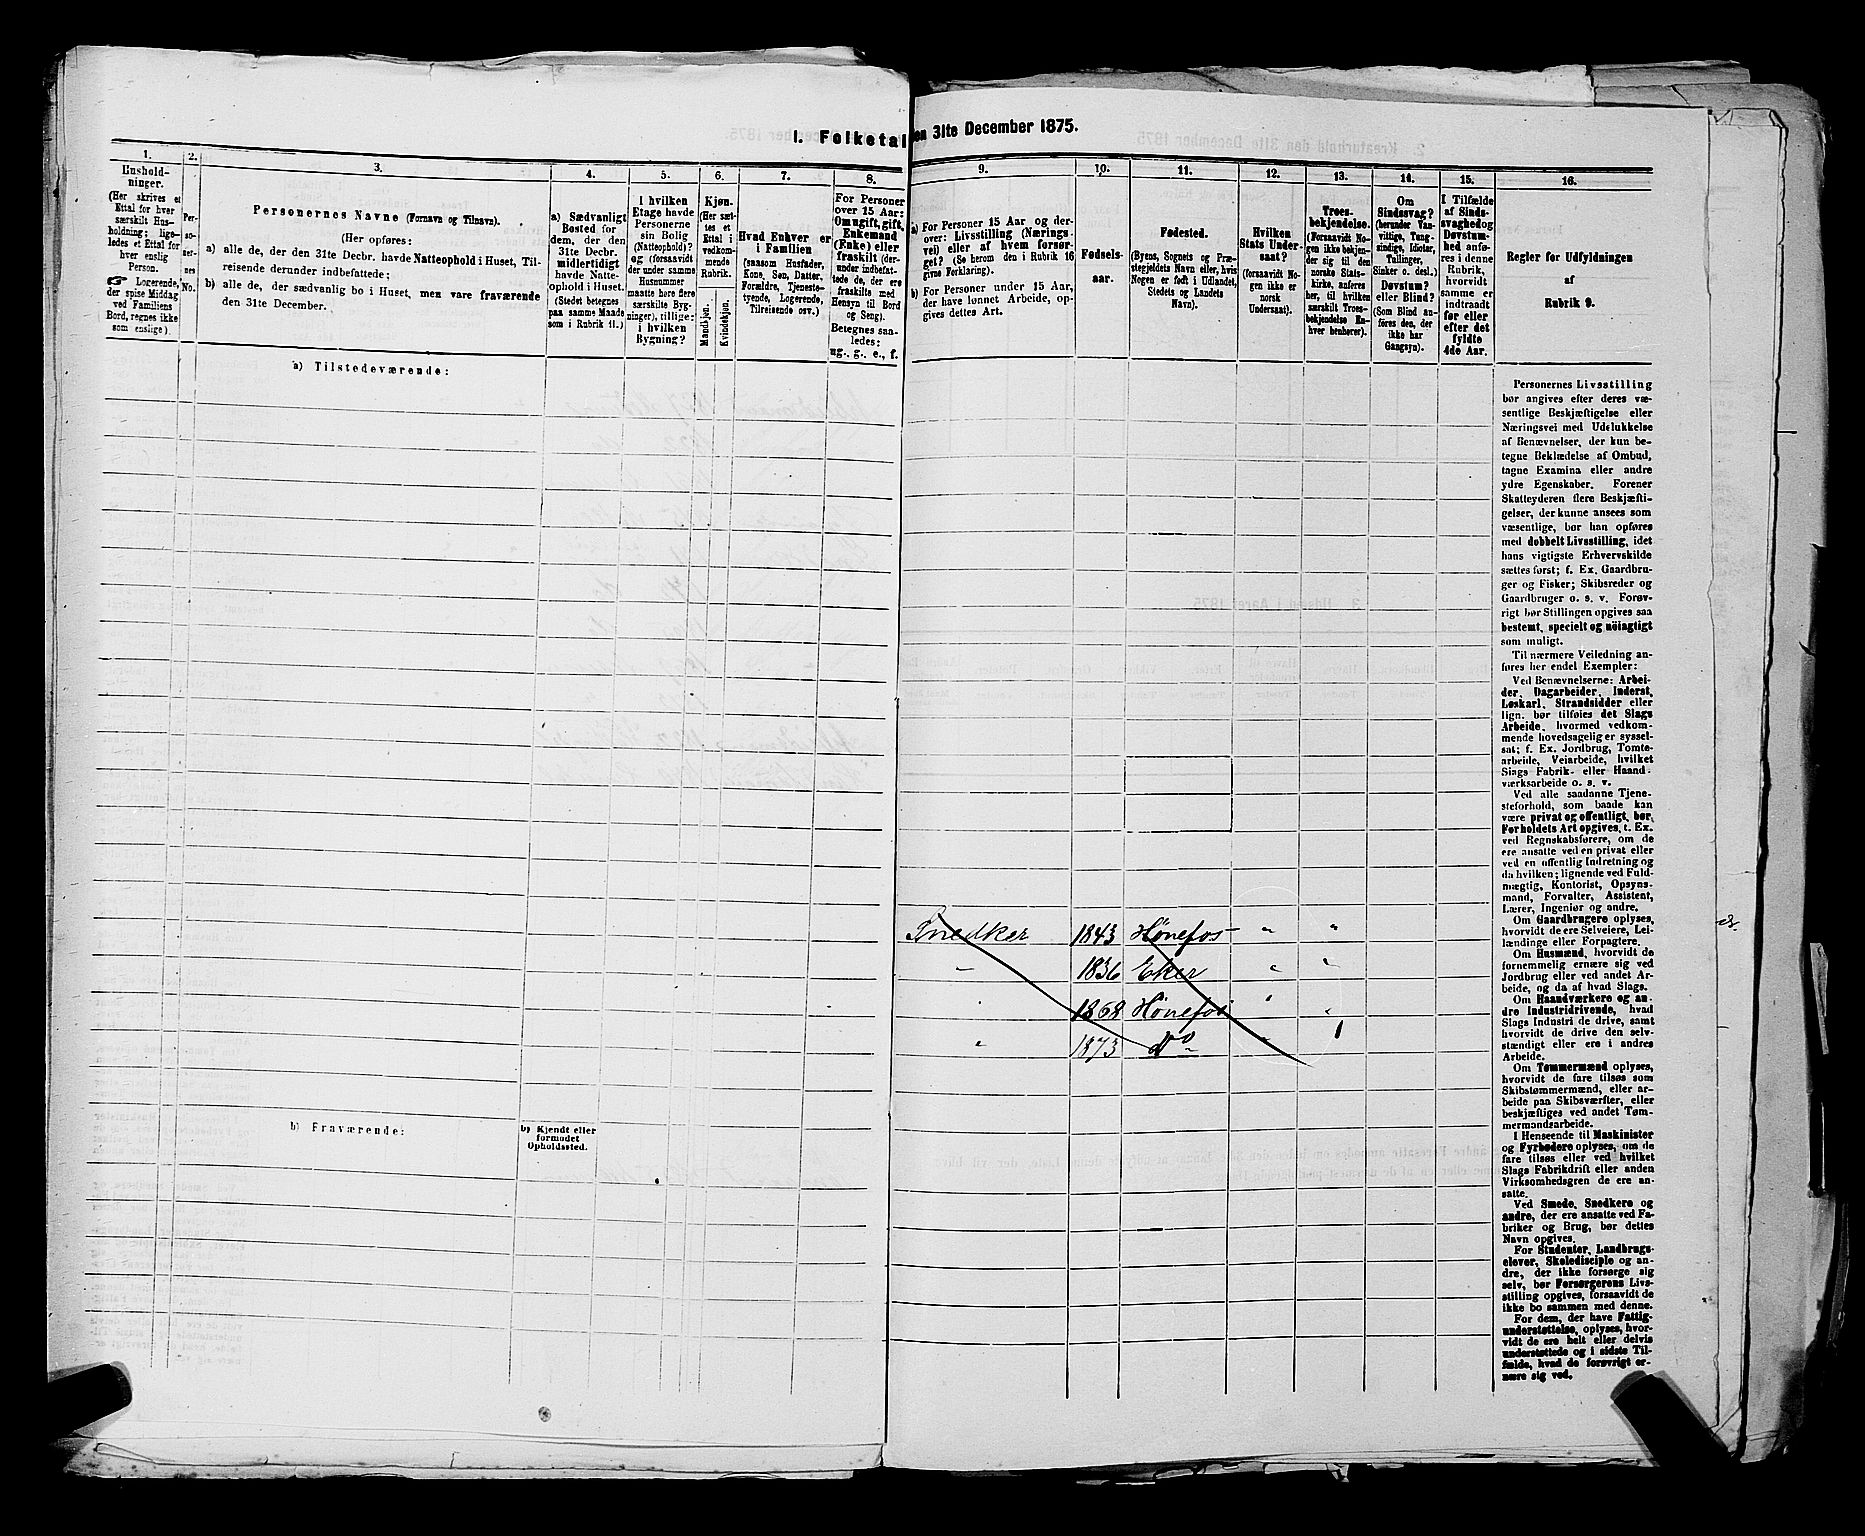 1. Folketal
1.
2.
3.
4.
5.
6.
7.
8.
Husholdninger.
(Her skrives et
Ettal for hver
særskilt Husholdning;
ligeledes
et Ettal for
hver enslig
Person.
Logerende,
der spise Middag
ved Familiens
Bord, regnes ikke
som enslige).
Personernes
No.
Personernes Navne (Fornavn og Tilnavn).
(Her opføres:
a) alle de, der den 31te Decbr. havde Natteophold i Huset, Tilreisende
derunder indbefattede;
b) alle de, der sædvanlig bo i Huset, men vare fraværende
den 31te December.
a) Sædvanligt
Bosted for
dem, der den
31te Decbr.
midlertidigt
havde Natteophold
i Huset.
(Stedet betegnes
paa samme Maade
som i Rubrik 11.)
I hvilken
Etage havde
Personerne
sin Bolig
(Natteophold)?
og (forsaavidt
der under samme
Husnummer
maatte høre flere
særskilte Bygninger),
tillige:
i hvilken
Bygning?
Kjøn.
(Her sættes
et
Ettal i
vedkommende
Rubrik.
Mandkjøn.
Kvindekjøn.
Hvad Enhver er
i Familien
(saasom Husfader,
Kone, Søn, Datter,
Forældre, Tjenestetyende,
Logerende,
Tilreisende osv.)
For Personer
over 15 Aar:
Om ugift, gift,
Enkemand
(Enke) eller
fraskilt (derunder
indbefattede
de, der ere
fraskilte med
Hensyn til Bord
og Seng).
Betegnes saaledes:
ug., g., e., f.
a) Tilstedeværende:
b) Fraværende:
b) Kjendt eller
formodet
Opholdssted.
den 31te December 1875.
9.
10.
11.
12.
13.
14.
15.
16.
a) For Personer 15 Aar og derover:
Livsstilling (Næringsvei)
eller af hvem forsørget?
(Se herom den i Rubrik 16
givne Forklaring).
b) For Personer under 15 Aar,
der have lønnet Arbeide, opgives
dettes Art.
Fødselsaar.
Fødested.
(Byens, Sognets og Præstegjeldets
Navn eller, hvis
Nogen er født i Udlandet,
Stedets og Landets
Navn).
Hvilken
Stats Undersaat?
(forsaavidt Nogen
ikke er
norsk
Undersaat).
Troesbekjendelse.
(Forsaavidt Nogen
ikke bekjender
sig til den
norske Statskirke,
anføres
her, til hvilken
særskilt Troesbekjendelse
Enhver
henhører).
Om
Sindssvag?
(herunder Vanvittige,
Tungsindige,
Idioter,
Tullinger,
Sinker o. desl.)
Døvstum?
eller Blind?
(Som Blind anføres
den, der
ikke har
Gangsyn).
I Tilfælde
af Sindssvaghed
og
Døvstumhed
anføres
i denne
Rubrik,
hvorvidt
samme er
indtraadt
før eller
efter det
fyldte
4de Aar.
Regler for Udfyldningen
af
Rubrik 9.
Snedker 1843 Hønefos " "
" 1836 Eker " "
" 1868 Hønefos " "
" 1873 Do " 1
Personernes Livsstilling
bør angives efter deres væsentlige
Beskjæftigelse eller
Næringsvei med Udelukkelse
af Benævnelser, der kun betegne
Beklædelse af Ombud,
tagne Examina eller andre
ydre Egenskaber. Forener
Skatteyderen flere Beskjæftigelser,
der kunne ansees som
væsentlige, bør han opføres
med dobbelt Livsstilling, idet
hans vigtigste Erhvervskilde
sættes først; f. Ex. Gaardbruger
og Fisker; Skibsreder og
Gaardbruger o. s. v. Forøvrigt
bør Stillingen opgives saa
bestemt, specielt og nøiagtigt
som muligt.
Til nærmere Veiledning anføres
her endel Exempler:
Ved Benævnelserne: Arbeider,
Dagarbeider, Inderst,
Løskarl, Strandsidder eller
lign. bør tilføies det Slags
Arbeide, hvormed vedkommende
hovedsagelig er sysselsat;
f. Ex. Jordbrug, Tomtearbeide,
Veiarbeide, hvilket
Slags Fabrik- eller Haandværksarbeide
o. s. v.
Ved alle saadanne Tjenesteforhold,
som baade kan
være privat og offentligt, bør
Forholdets Art opgives, t. Ex.
ved Regnskabsførere, om de
ere ansatte ved en privat eller
ved en offentlig Indretning og
da hvilken; lignende ved Fuldmægtig,
Kontorist, Opsynsmand,
Forvalter, Assistent,
Lærer, Ingeniør og andre.
Om Gaardbrugere oplyses,
hvorvidt de ere Selveiere, Leilændinge
eller Forpagtere.
Om Husmænd, hvorvidt de
fornemmelig ernære sig ved
Jordbrug eller ved andet Arbeide,
og da af hvad Slags.
Om Haandværkere og andre
Industridrivende, hvad
Slags Industri de drive, samt
hvorvidt de drive den selvstændigt
eller ere i andres
Arbeide.
Om Tømmermænd oplyses,
hvorvidt de fare tilsøs som
Skibstømmermænd, eller arbeide
paa Skibsværfter, eller
beskjæftiges ved andet Tømmermandsarbeide.
I Henseende til Maskinister
og Fyrbødere oplyses, om de
fare tilsøs eller ved hvilket
Slags Fabrikdrift eller anden
Virksomhedsgren de ere ansatte.
Ved Smede, Snedkere og
andre, der ere ansatte ved Fabriker
og Brug, bør dettes
Navn opgives.
For Studenter, Landbrugselever,
Skoledisciple og andre,
der ikke forsørge sig
selv, bør Forsørgerens Livsstilling
opgives, forsaavidt de
ikke bo sammen med denne.
For dem, der have Fattigunderstøttelse,
oplyses, hvorvidt
de ere helt eller delvis
understøttede og i sidste Tilfælde,
hvad de forøvrigt ernære
sig ved.